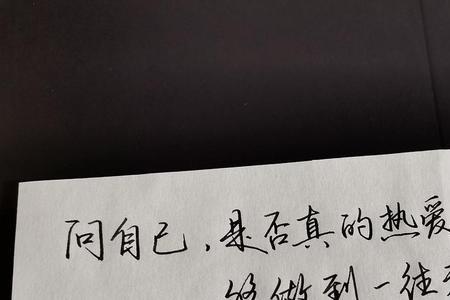 问自己，是否真的热爱
做到一往